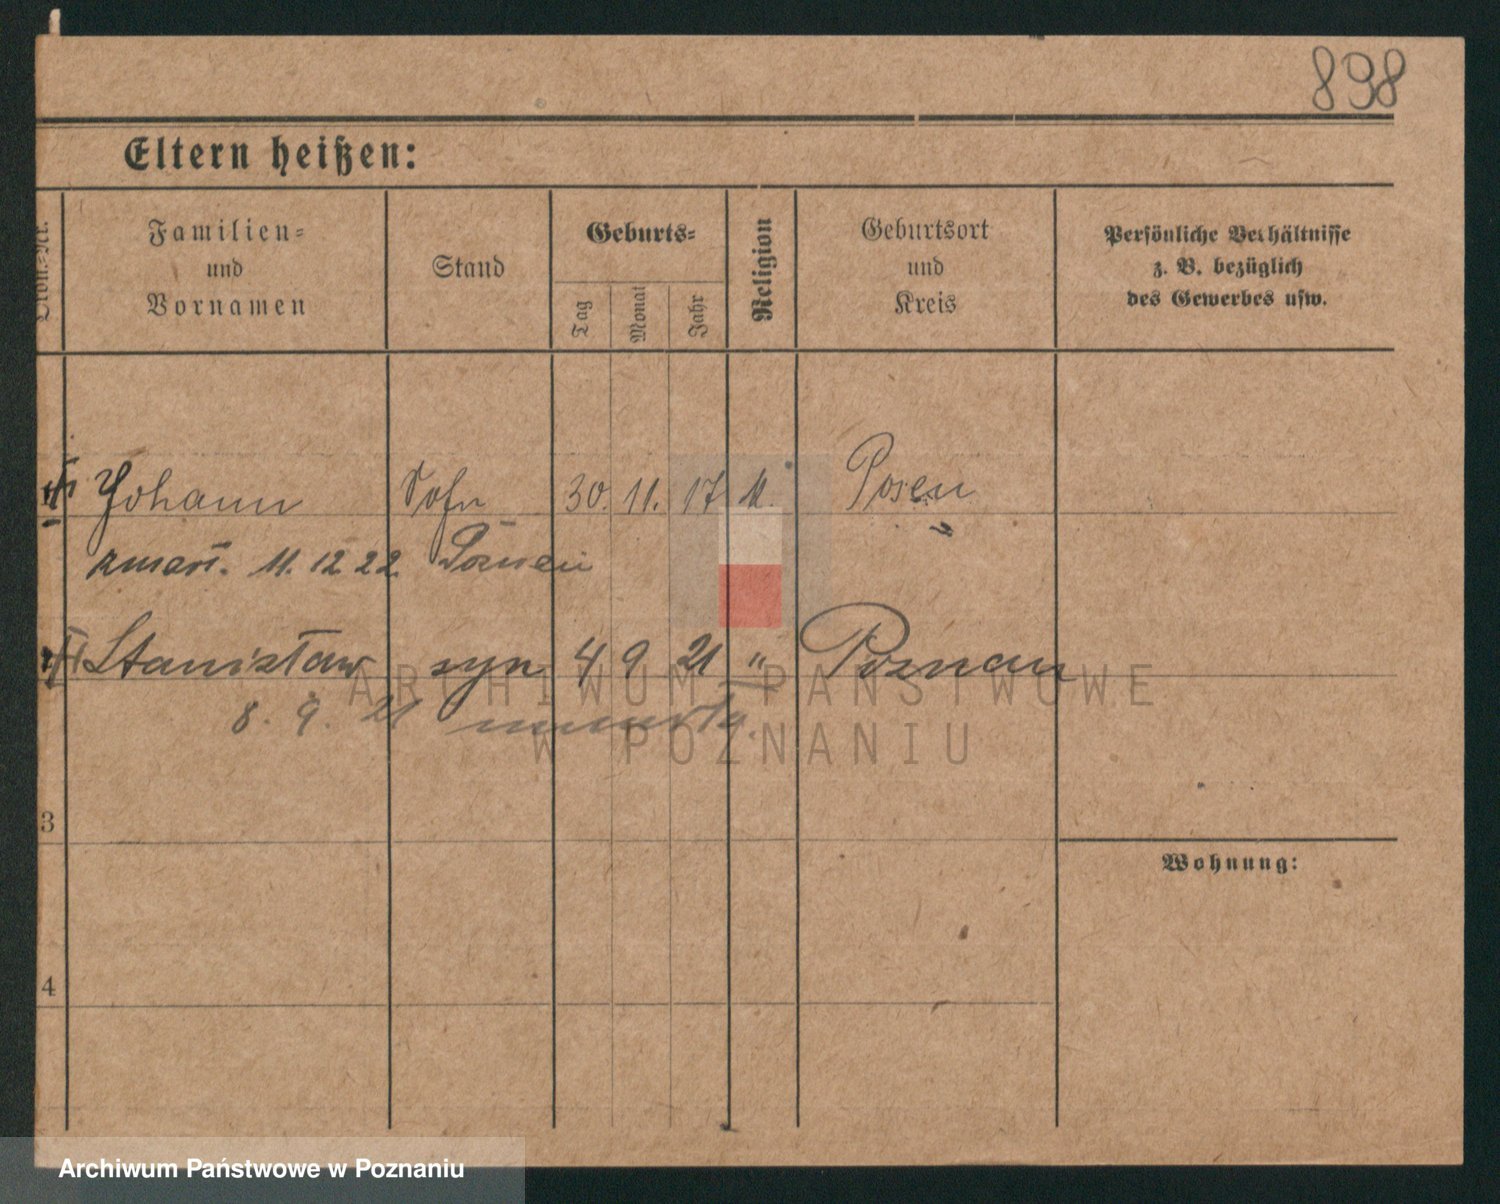 898
Eltern heißen:
Familien-
und
Vornamen
Stand
Geburts-
Tag
Monat
Jahr
Religion
Geburtsort
und
Kreis
Persönliche Verhältnisse
z. B. bezüglich
des Gewerbes usw.
Johann Sohn 30. 11. 17 Posen
zmarł. 11. 12 22
Stanisław syn 4 9 21 " Poznań
8. 9. 21
3
Wohnung:
4
ARCHIWUM PAŃSTWOWE
W POZNANIU
Archiwum Państwowe w Poznaniu